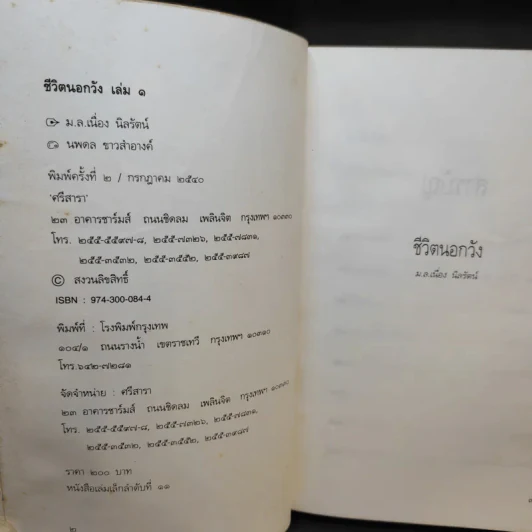 ชีวิตนอกวัง เล่ม ๑
ม.ล.เนื่อง นิลรัตน์
นพดล ขาวสำอางค์
พิมพ์ครั้งที่ ๒ / กรกฎาคม ๒๕๔๐
'ศรีสารา'
๒๓ อาคารชาร์มส์ ถนนชิดลม เพลินจิต กรุงเทพฯ ๑๐๓๓๐
โทร. ๒๕๕-๕๕๙๗-๘, ๒๕๕-๗๓๒๖, ๒๕๕-๗๘๓๑,
๒๕๕-๓๕๓๒, ๒๕๕-๓๕๕๒, ๒๕๕-๓๙๘๗
© สงวนลิขสิทธิ์
ISBN : 974-300-084-4
พิมพ์ที่ : โรงพิมพ์กรุงเทพ
๑๐๙/๑ ถนนรางน้ำ เขตราชเทวี กรุงเทพฯ ๑๐๓๑๐
โทร.๖๔๒-๗๒๘๑
จัดจำหน่าย : ศรีสารา
๒๓ อาคารชาร์มส์ ถนนชิดลม เพลินจิต กรุงเทพฯ ๑๐๓๓๐
โทร. ๒๕๕-๕๕๙๗-๘, ๒๕๕-๗๓๒๖, ๒๕๕-๗๘๓๑,
๒๕๕-๓๕๓๒, ๒๕๕-๓๕๕๒, ๒๕๕-๓๙๘๗
ราคา ๒๐๐ บาท
หนังสือเล่มเล็กลำดับที่ ๑๑
๒
ชีวิตนอกวัง
ม.ล.เนื่อง นิลรัตน์